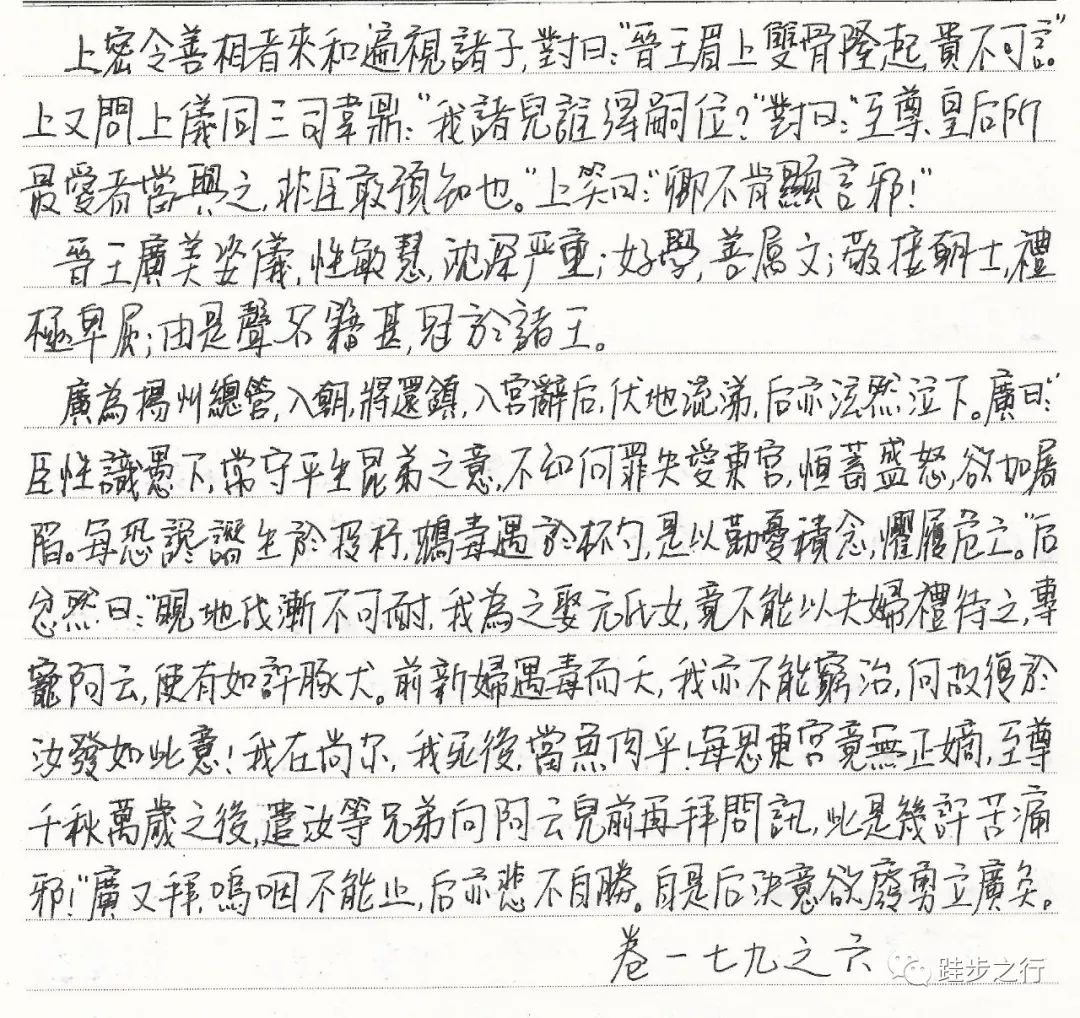 上密令善相者來和遍視諸子,對曰:"晉王眉上雙骨隆起,貴不可言。"
上又問上儀同三司韋鼎:"我諸兒誰得嗣位?"對曰:"至尊、皇后所
最愛者當與之,非臣敢預知也。"上笑曰:"卿不肯顯言邪!"
晉王廣美姿儀,性敏慧,沈深严重;好學,善属文;敬接朝士,禮
極卑屈;由是聲名籍甚,冠於諸王。
廣為揚州總管,入朝,將還鎮,入宮辭后,伏地流涕,后亦泫然泣下。廣曰:"
臣性識愚下,常守平生昆弟之意,不知何罪失愛東宮,恒蓄盛怒,欲加屠
陷。每恐讒譖生於投杼,鴆毒遇於杯勺,是以勤憂積念,懼履危亡。"后
忿然曰:"睍地伐漸不可耐,我為之娶元氏女,竟不能以夫婦禮待之,專
寵阿云,使有如許豚犬。前新婦遇毒而夭,我亦不能窮治,何故復於
汝發如此意!我在尚尔,我死後,當魚肉乎!每思東宮竟無正嫡,至尊
千秋萬歲之後,遣汝等兄弟向阿云兒前再拜問訊,此是幾許苦痛
邪!"廣又拜,嗚咽不能止,后亦悲不自勝。自是后決意欲廢勇立廣矣。
卷一七九之六
跬步之行